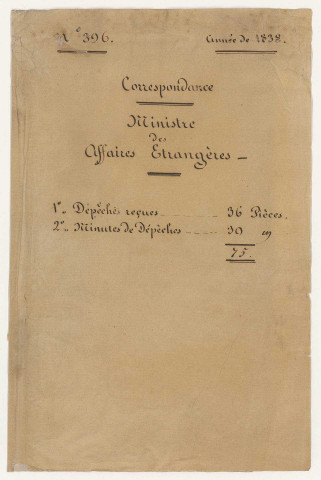 N° 396. Année de 1838.
Correspondance
Ministre
des
Affaires Etrangères
1° Dépêches reçues 36 Pièces
2° Minutes de Dépêches 39 "
75.